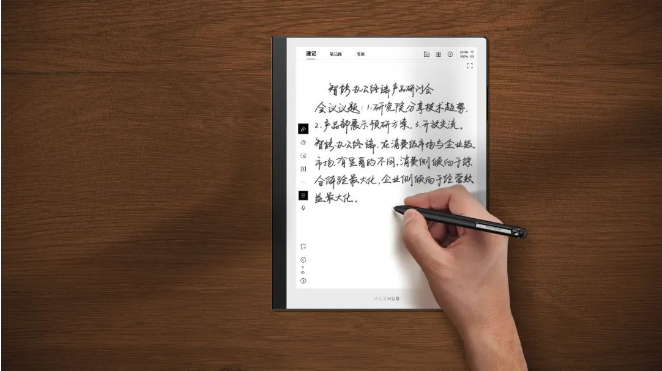 速记 笔记画 书画
智能办公终端产品研讨会
会议议题：1.研究院分享技术趋势.
2.产品部展示预研方案. 3.开放交流。
智能办公终端，在消费级市场与企业级
市场，有显著的不同。消费侧倾向于综
合体验最大化，企业侧倾向于经营效
益最大化。